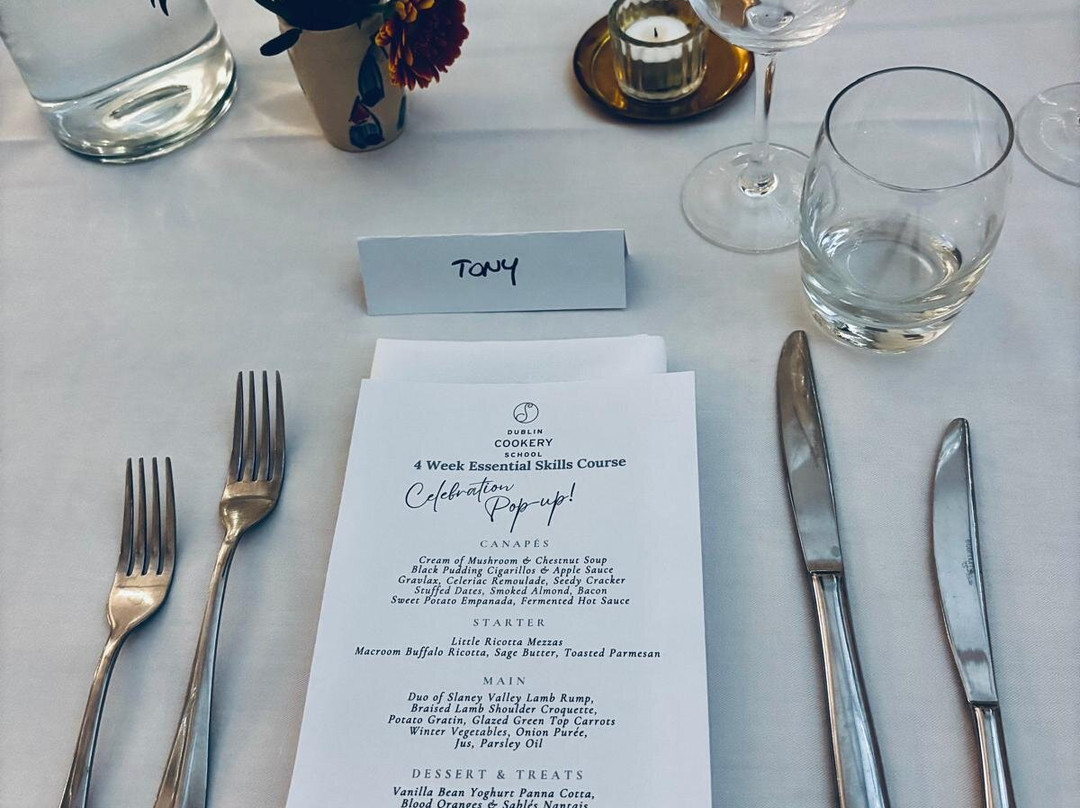 TONY
DUBLIN
COOKERY
SCHOOL
4 Week Essential Skills Course
Celebration
Pop-up!
CANAPÉS
Cream of Mushroom & Chestnut Soup
Black Pudding Cigarillos & Apple Sauce
Gravlax, Celeriac Remoulade, Seedy Cracker
Stuffed Dates, Smoked Almond, Bacon
Sweet Potato Empanada, Fermented Hot Sauce
STARTER
Little Ricotta Mezzas
Macroom Buffalo Ricotta, Sage Butter, Toasted Parmesan
MAIN
Duo of Slaney Valley Lamb Rump,
Braised Lamb Shoulder Croquette,
Potato Gratin, Glazed Green Top Carrots
Winter Vegetables, Onion Purée,
Jus, Parsley Oil
DESSERT & TREATS
Vanilla Bean Yoghurt Panna Cotta,
Blood Oranges & Sablés Nantais